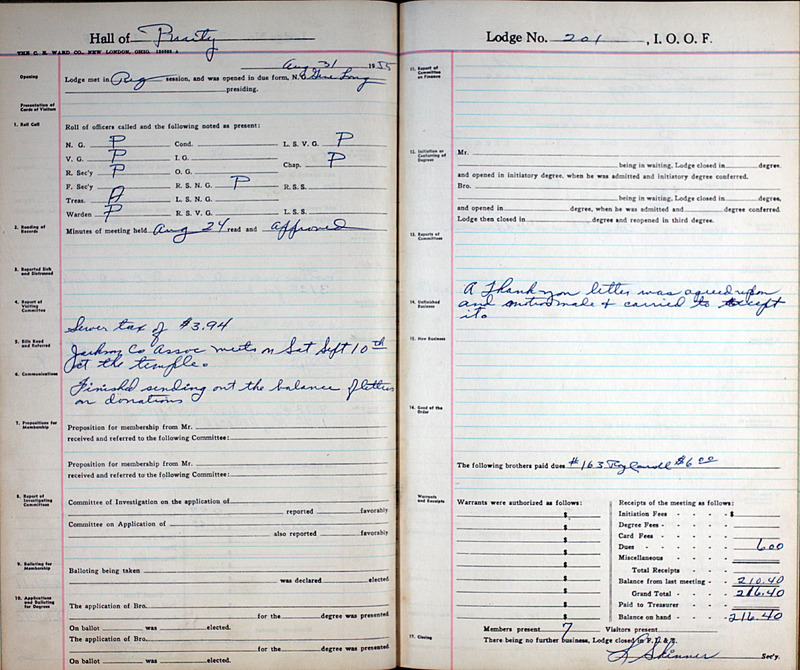 Hall of Purity
THE C. E. WARD CO., NEW LONDON, OHIO.
Aug 31 1955
Opening
Lodge met in Reg session, and was opened in due form, N. G. Gene Long
presiding.
Presentation of Cards of Visitors
1. Roll Call
Roll of officers called and the following noted as present:
N. G. P Cond. L. S. V. G. P
V. G. P I. G. Chap. P
R. Sec'y P O. G.
F. Sec'y P R. S. N. G. P R. S. S.
Treas. A L. S. N. G.
Warden P R. S. V. G. L. S. S.
2. Reading of Records
Minutes of meeting held Aug 24 read and approved
3. Reported Sick and Distressed
4. Report of Visiting Committee
Sewer tax of $3.94
5. Bills Read and Referred
Jackson Co Assoc meets on Sat Sept 10th
at the temple.
6. Communications
Finished sending out the balance of letters
on donations
7. Propositions for Membership
Proposition for membership from Mr.
received and referred to the following Committee:
Proposition for membership from Mr.
received and referred to the following Committee:
8. Report of Investigating Committees
Committee of Investigation on the application of
reported favorably
Committee on Application of
also reported favorably
9. Balloting for Membership
Balloting being taken
was declared elected
10. Applications and Balloting for Degrees
The application of Bro.
for the degree was presented.
On ballot was elected.
The application of Bro.
for the degree was presented.
On ballot was elected.
Lodge No. 201, I. O. O. F.
11. Report of Committee on Finance
12. Initiation or Conferring of Degrees
Mr.
being in waiting, Lodge closed in degree,
and opened in initiatory degree, when he was admitted and initiatory degree conferred.
Bro.
being in waiting, Lodge closed in degree,
and opened in degree, when he was admitted and degree conferred.
Lodge then closed in degree and reopened in third degree.
13. Reports of Committees
A Thank you letter was agreed upon
14. Unfinished Business
and motion made & carried to accept
it.
15. New Business
16. Good of the Order
The following brothers paid dues #163 Roy $6.00
Warrants and Receipts
Warrants were authorized as follows:
$
$
$
$
$
$
$
$
$
Receipts of the meeting as follows:
Initiation Fees $
Degree Fees
Card Fees
Dues 6.00
Miscellaneous
Total Receipts
Balance from last meeting 210.40
Grand Total 216.40
Paid to Treasurer
Balance on hand 216.40
Members present 7 Visitors present
17. Closing
There being no further business, Lodge closed in F. L. & T.
L Skinner Sec'y.